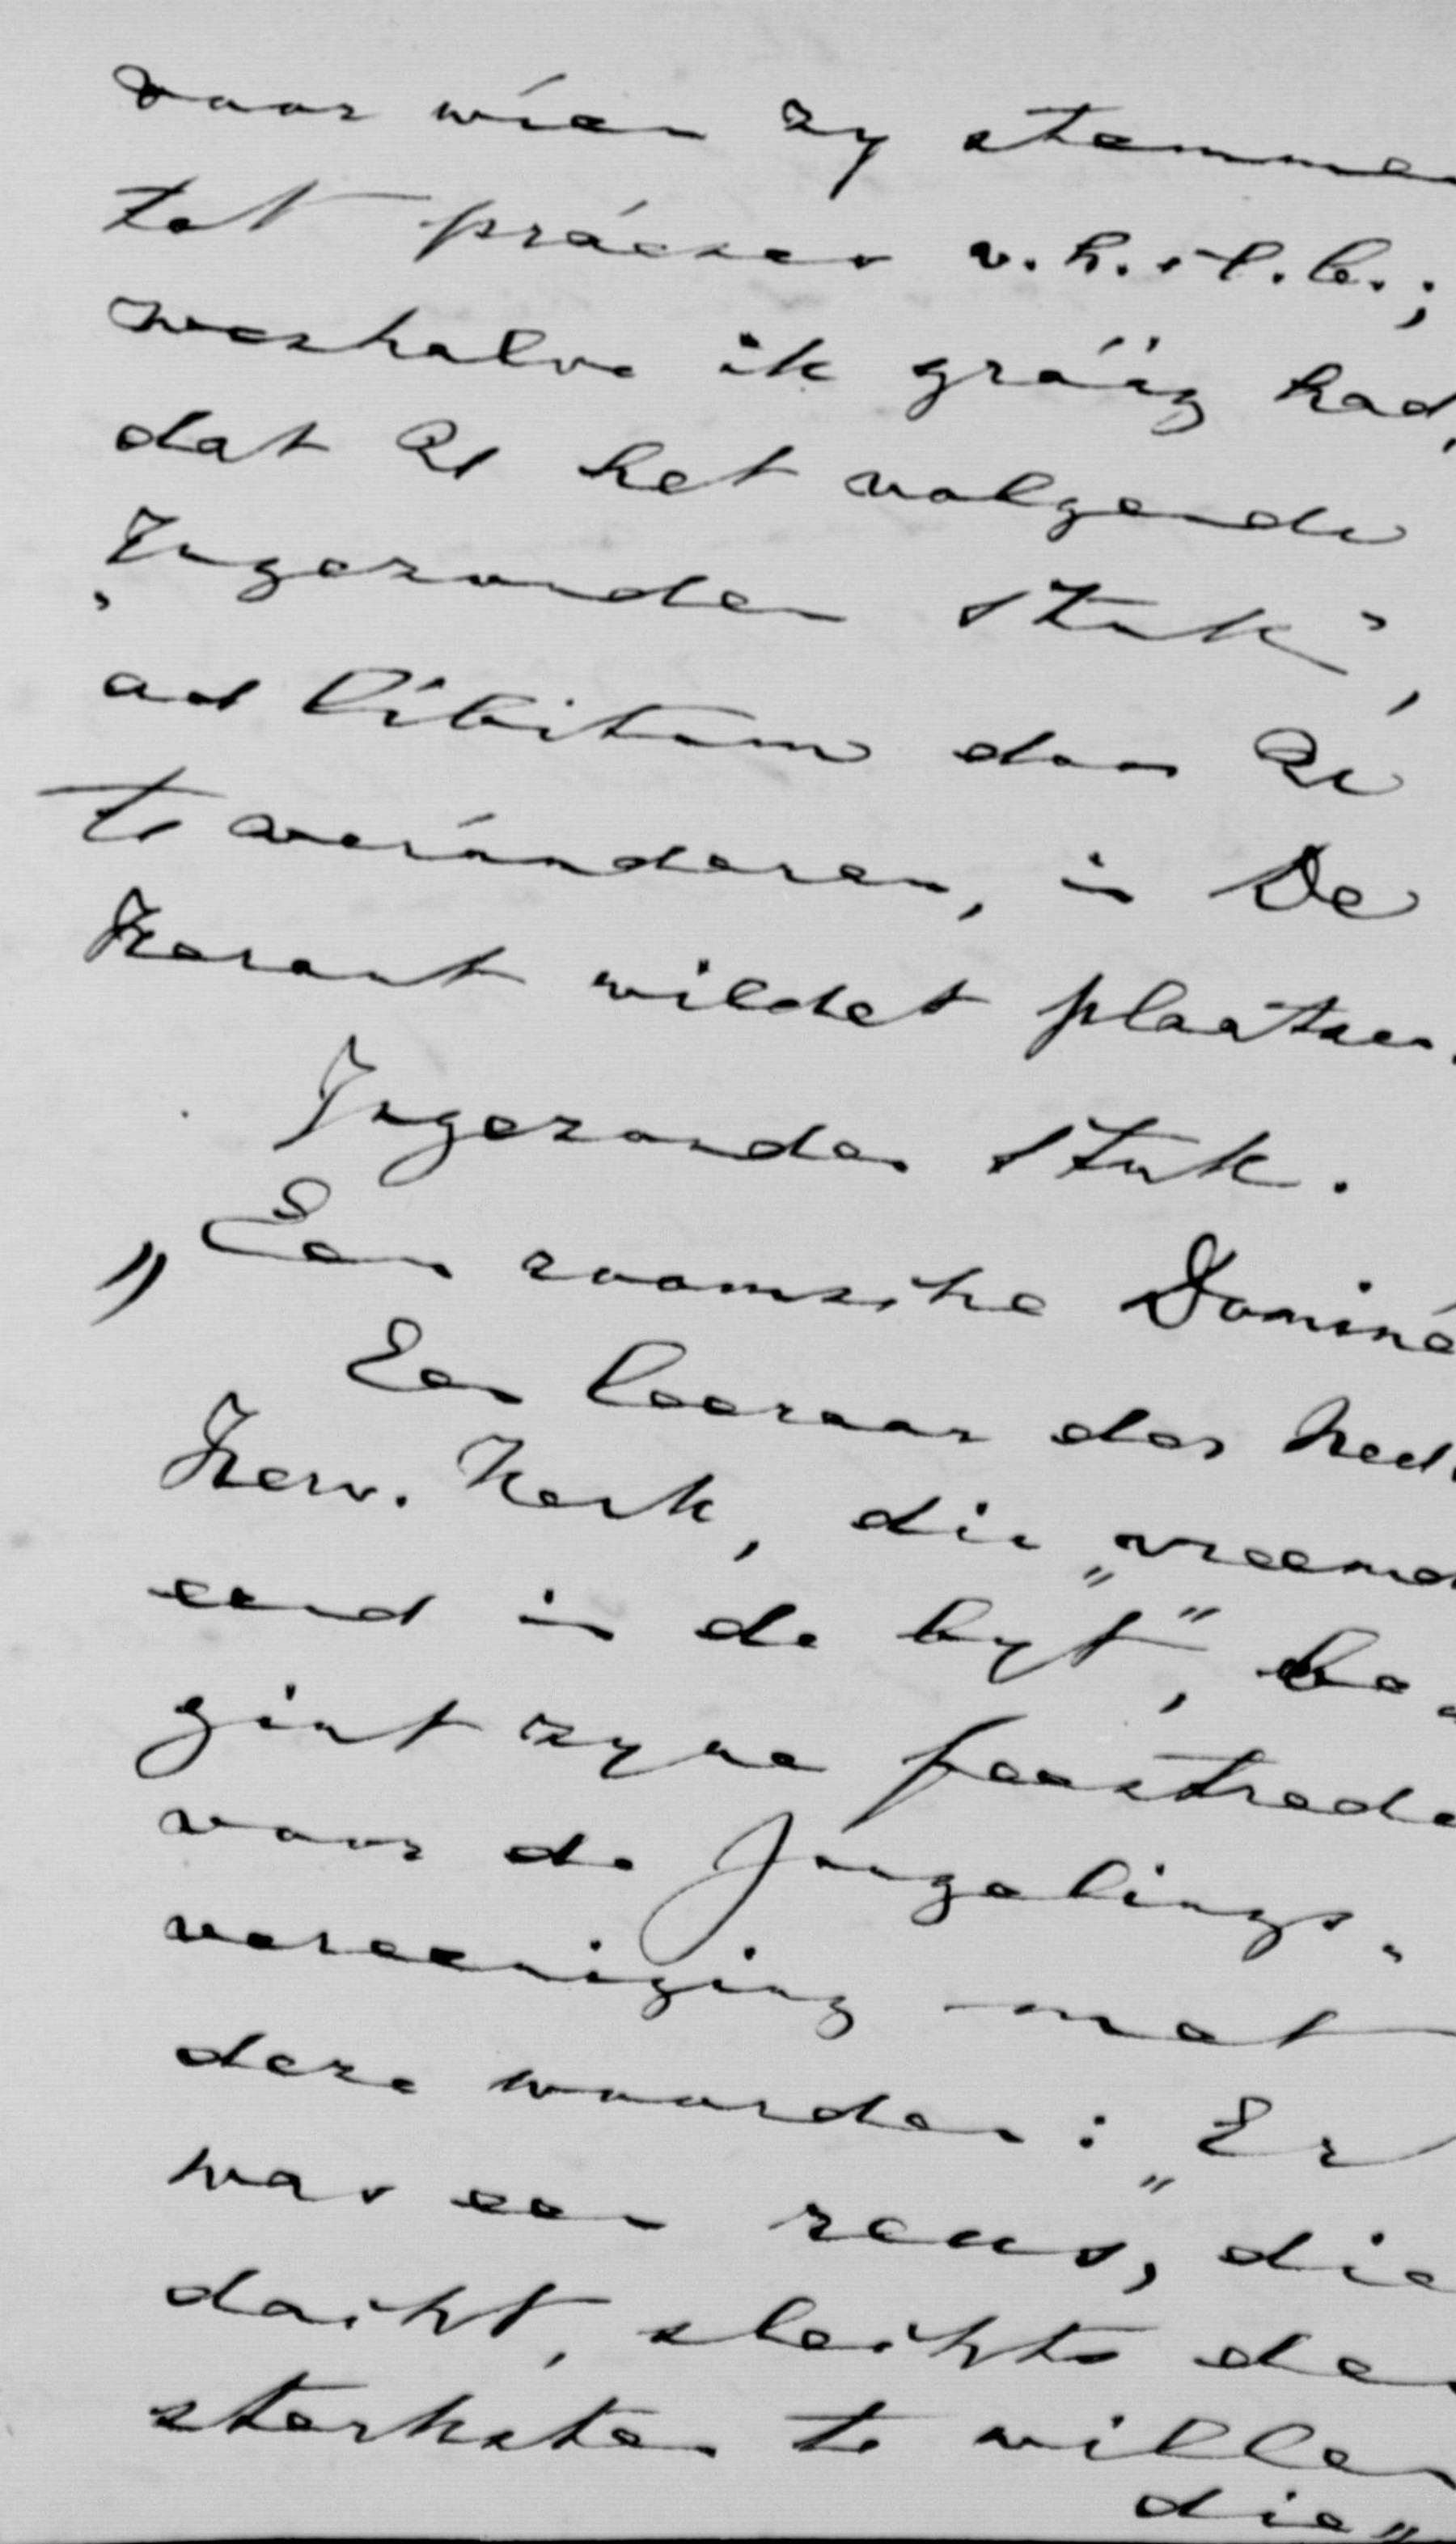 voor wíen zy stemmen
tot práeses v.h. st. b.;
weshalve ik gráág had,
dat U het volgende
„Ingezonden Stuk",
ad libitum door U
te veránderen, in De
Korant wildet plaatsen.
Ingezonden Stuk.
„Een roomsche Dominé
Een leeraar der Ned.
Herv. Kerk, die „vreemde
eend in de byt", be-
gint zyne feestrede
voor de Jongelings-
vereeniging met
deze woorden: „Er
was een reus, die
dacht, slechts den
sterksten te willen
die„